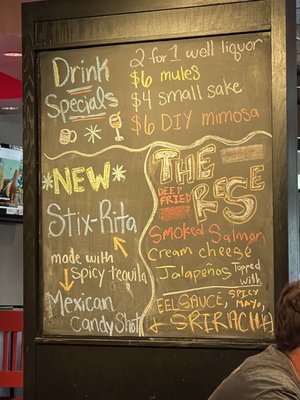 Drink
Specials
2 for 1 well liquor
$6 mules
$4 small sake
$6 DIY mimosa
NEW
Stix-Rita
made with
spicy tequila
Mexican
Candy Shot
THE
DEEP
FRIED
REESE
Smoked Salmon
Cream cheese
Jalapeños Topped
with
EEL SAUCE, SPICY
MAYO,
+ SRIRACHA